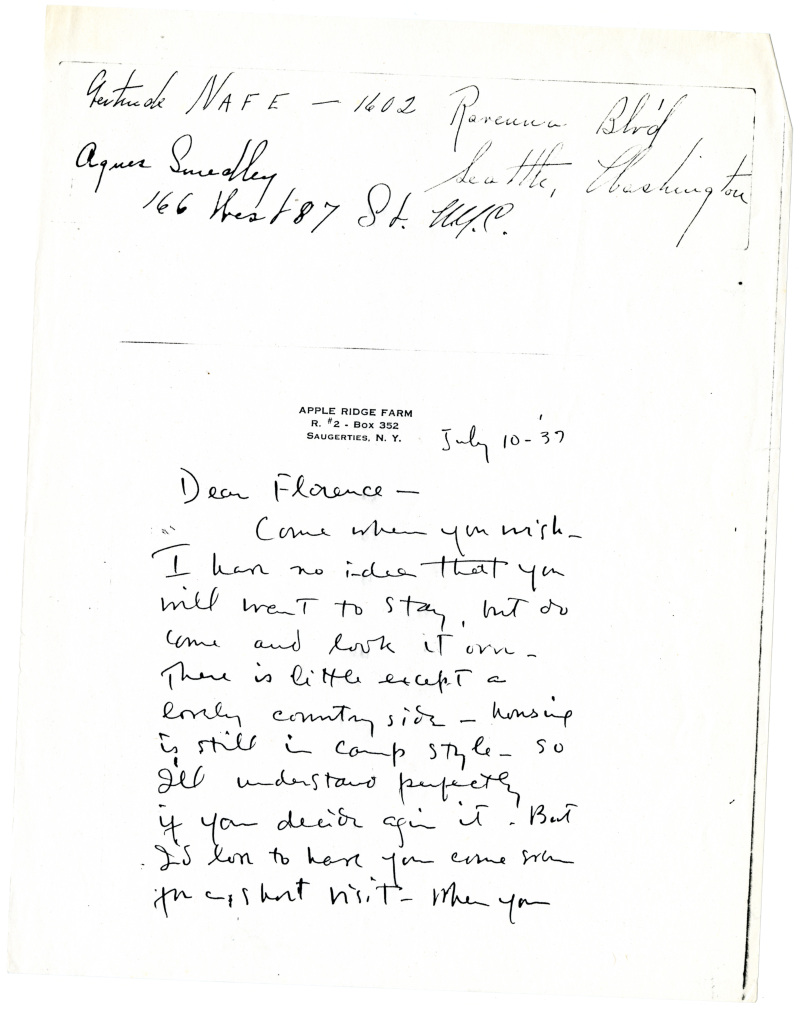 Gertrude NAFE — 1602 Ravenna Blv'd
Seattle, Washington
Agnes Smedley
166 West 87 St. N.Y.C.
APPLE RIDGE FARM
R. #2 - Box 352
SAUGERTIES, N. Y.
July 10 - '37
Dear Florence —
Come when you wish —
I have no idea that you
will want to stay, but do
come and look it over —
There is little except a
lovely country side — housing
is still in camp style — so
I'll understand perfectly
if you decide agin it. But
I'd love to have you come even
for a short visit — When you